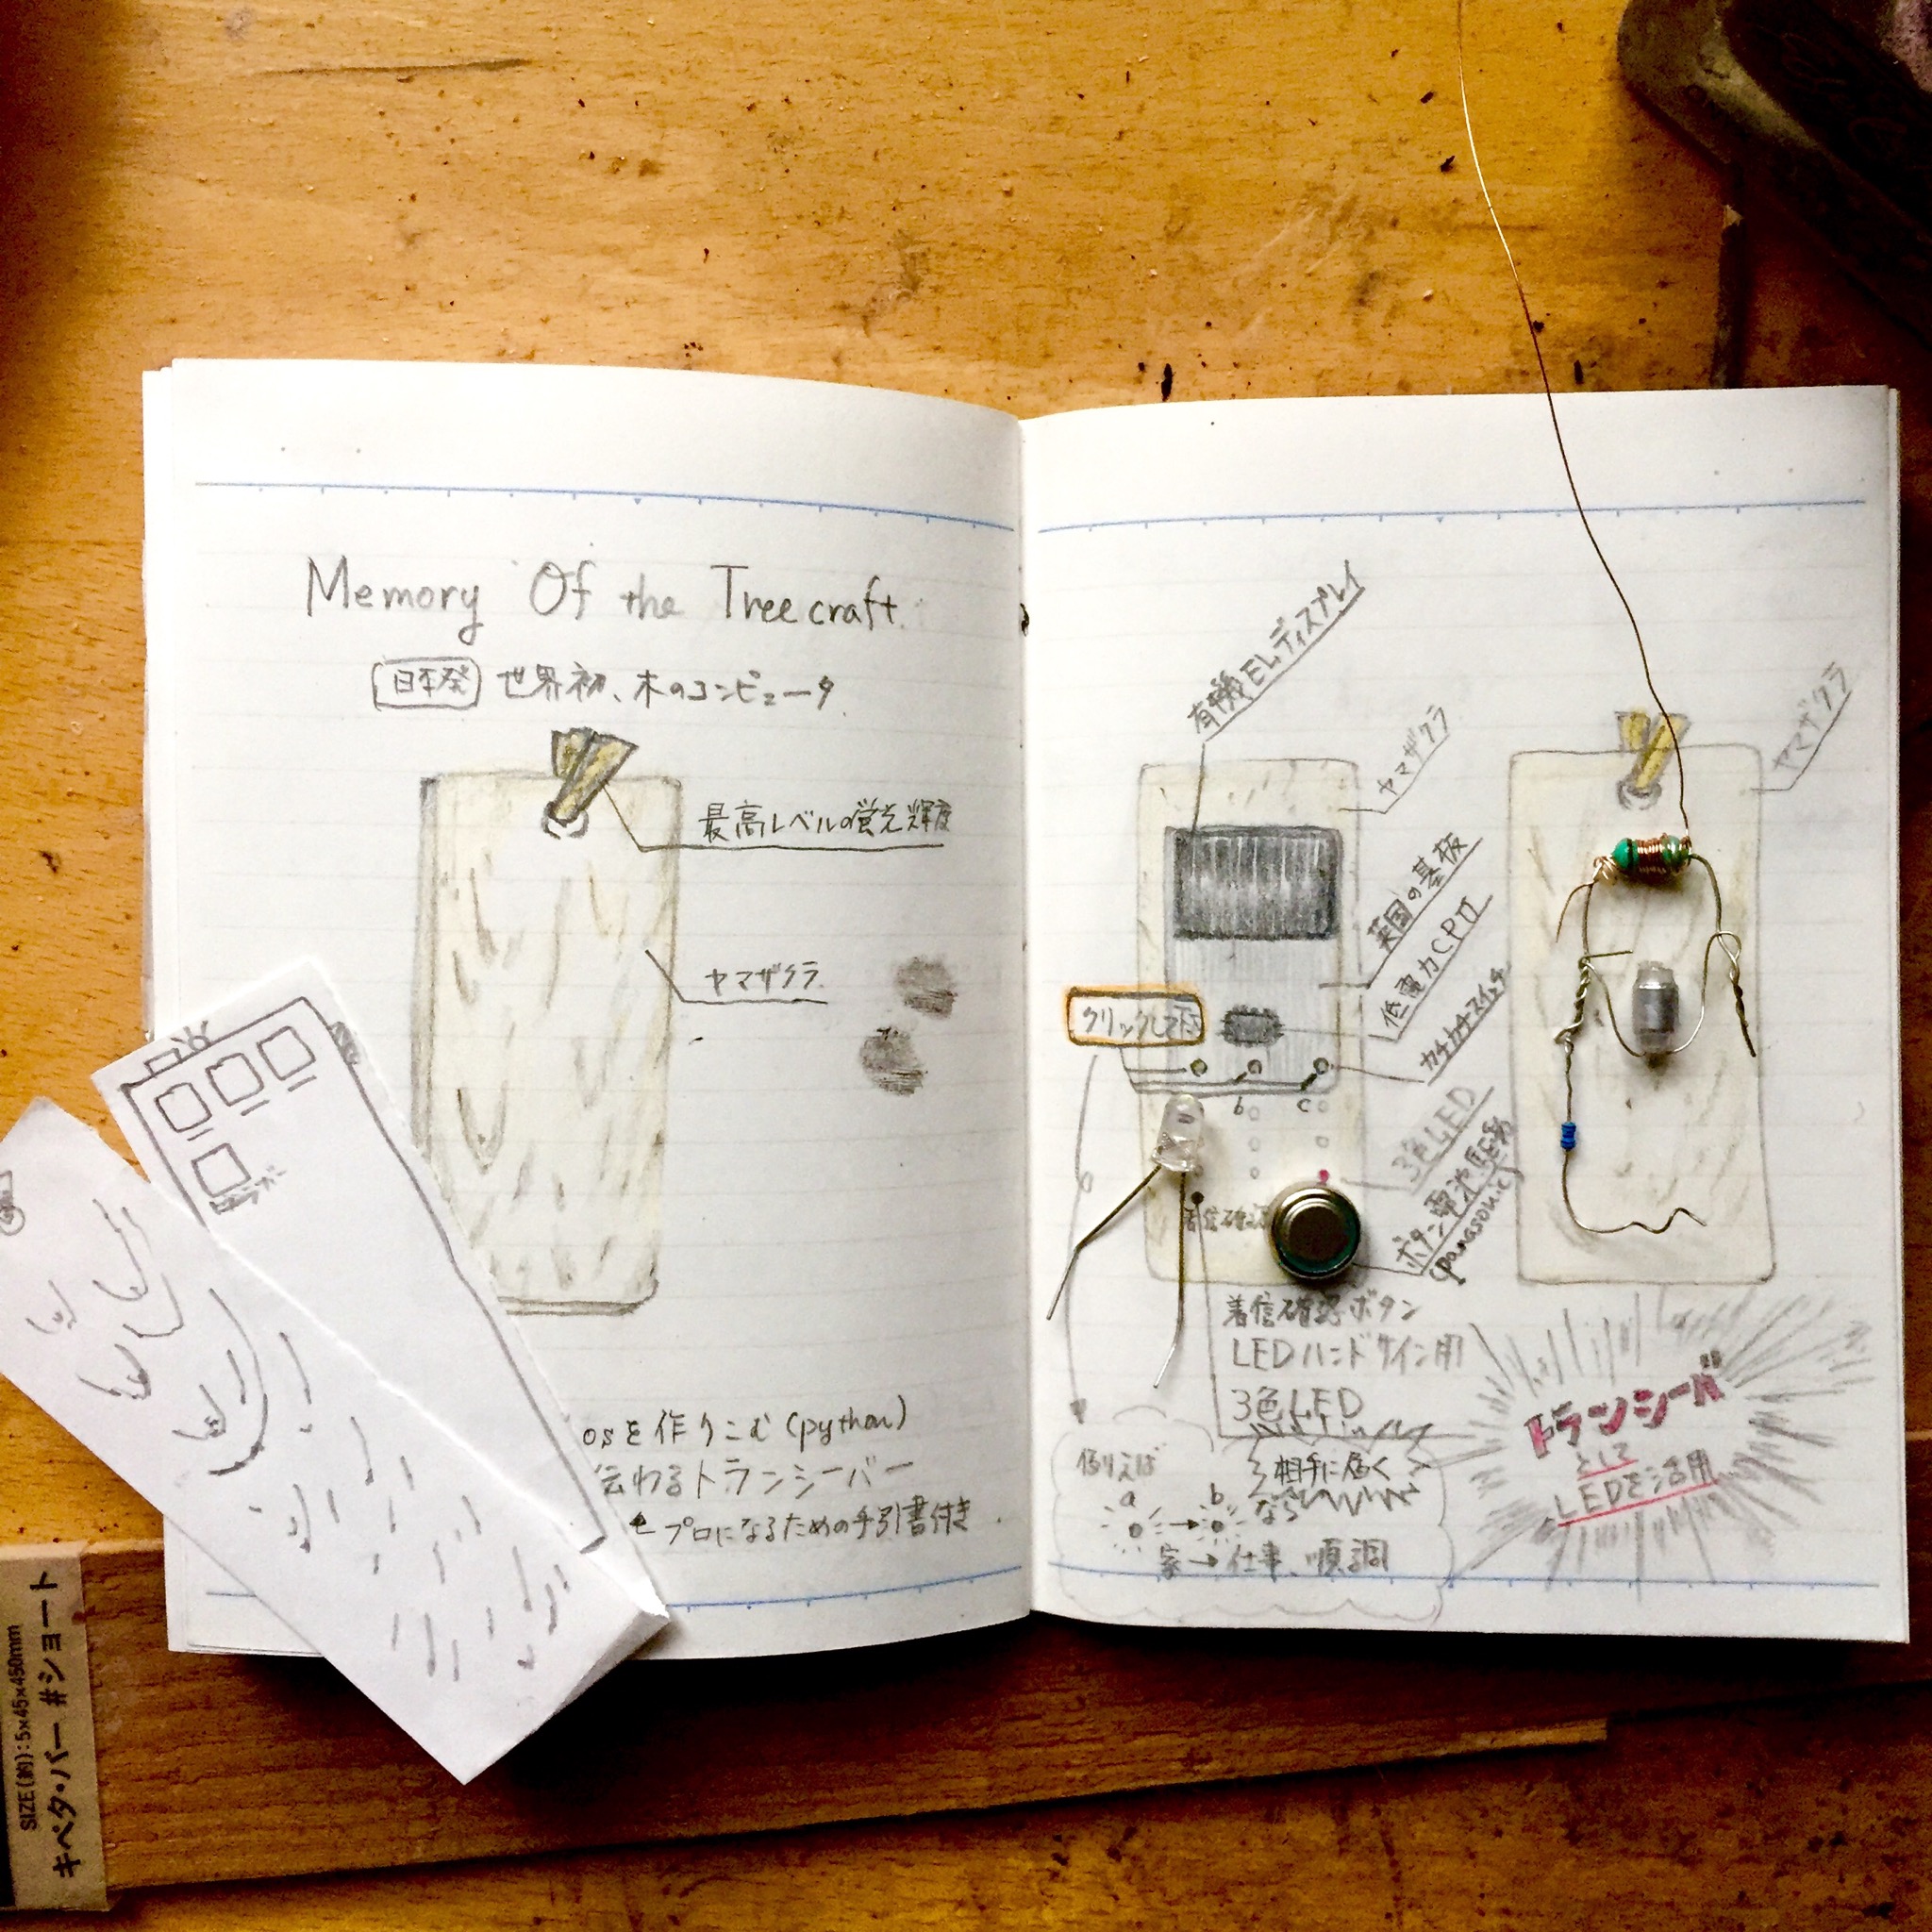 Memory Of the Treecraft.
日本発 世界初、木のコンピュータ.
最高レベルの蛍光輝度
ヤマザクラ
osを作りこむ (python)
伝わるトランシーバー
← プロになるための手引書付き.
有機ELディスプレイ
ヤマザクラ
英国の基板
低電力CPU
カチカチスイッチ
クリックして
b
c
3色LED
ボタン電池
(panasonic)
着信確認
ヤマザクラ
着信確認ボタン
LEDハンドサイン用
3色LED
例えば
a
b
相手に届く
なら
家→仕事、順調
トランシーバ
として
LEDを活用
SIZE(約):5x45x450mm
キペタ・バー #ショート